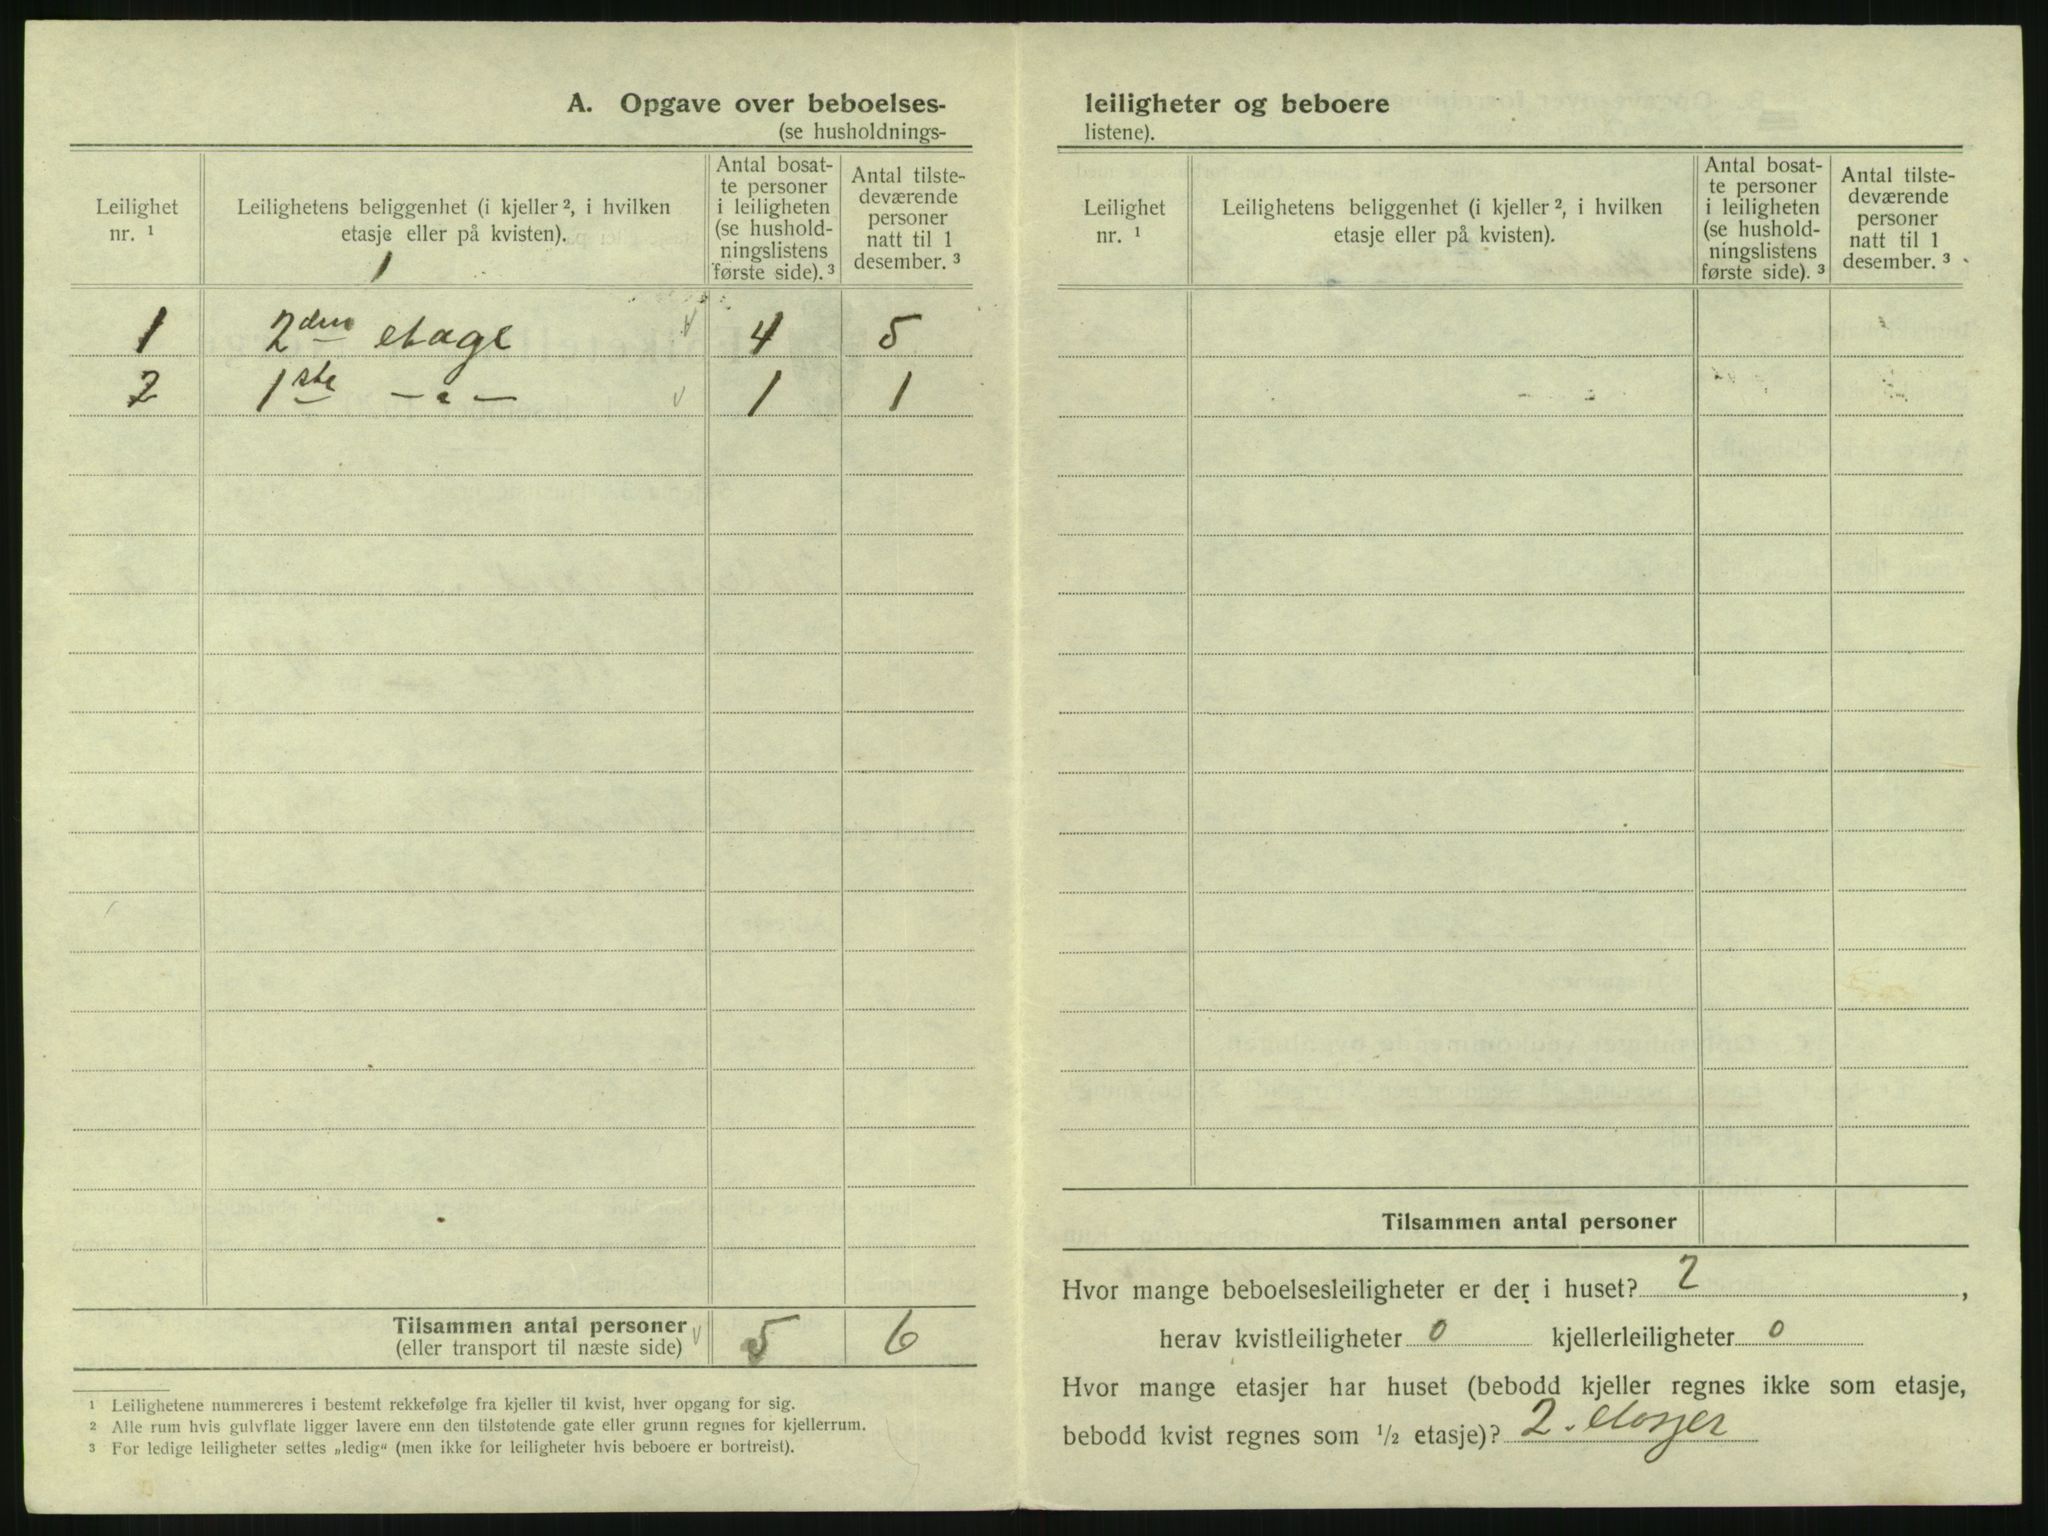 A. Opgave over beboelses-
(se husholdnings-
Leilighet nr. ¹
Leilighetens beliggenhet (i kjeller ², i hvilken
etasje eller på kvisten).
1
Antal bosat-
te personer
i leiligheten
(se hushold-
ningslistens
første side). ³
Antal tilste-
deværende
personer
natt til 1
desember. ³
1 2den etage 4 5
2 1ste — „ — 1 1
Tilsammen antal personer 5 6
(eller transport til næste side)
¹ Leilighetene nummereres i bestemt rekkefølge fra kjeller til kvist, hver opgang for sig.
² Alle rum hvis gulvflate ligger lavere enn den tilstøtende gate eller grunn regnes for kjellerrum.
³ For ledige leiligheter settes „ledig“ (men ikke for leiligheter hvis beboere er bortreist).
leiligheter og beboere
listene).
Leilighet nr. ¹
Leilighetens beliggenhet (i kjeller ², i hvilken
etasje eller på kvisten).
Antal bosat-
te personer
i leiligheten
(se hushold-
ningslistens
første side). ³
Antal tilste-
deværende
personer
natt til 1
desember. ³
Tilsammen antal personer
Hvor mange beboelsesleiligheter er der i huset? 2,
herav kvistleiligheter 0 kjellerleiligheter 0
Hvor mange etasjer har huset (bebodd kjeller regnes ikke som etasje,
bebodd kvist regnes som ½ etasje)? 2. etasjer